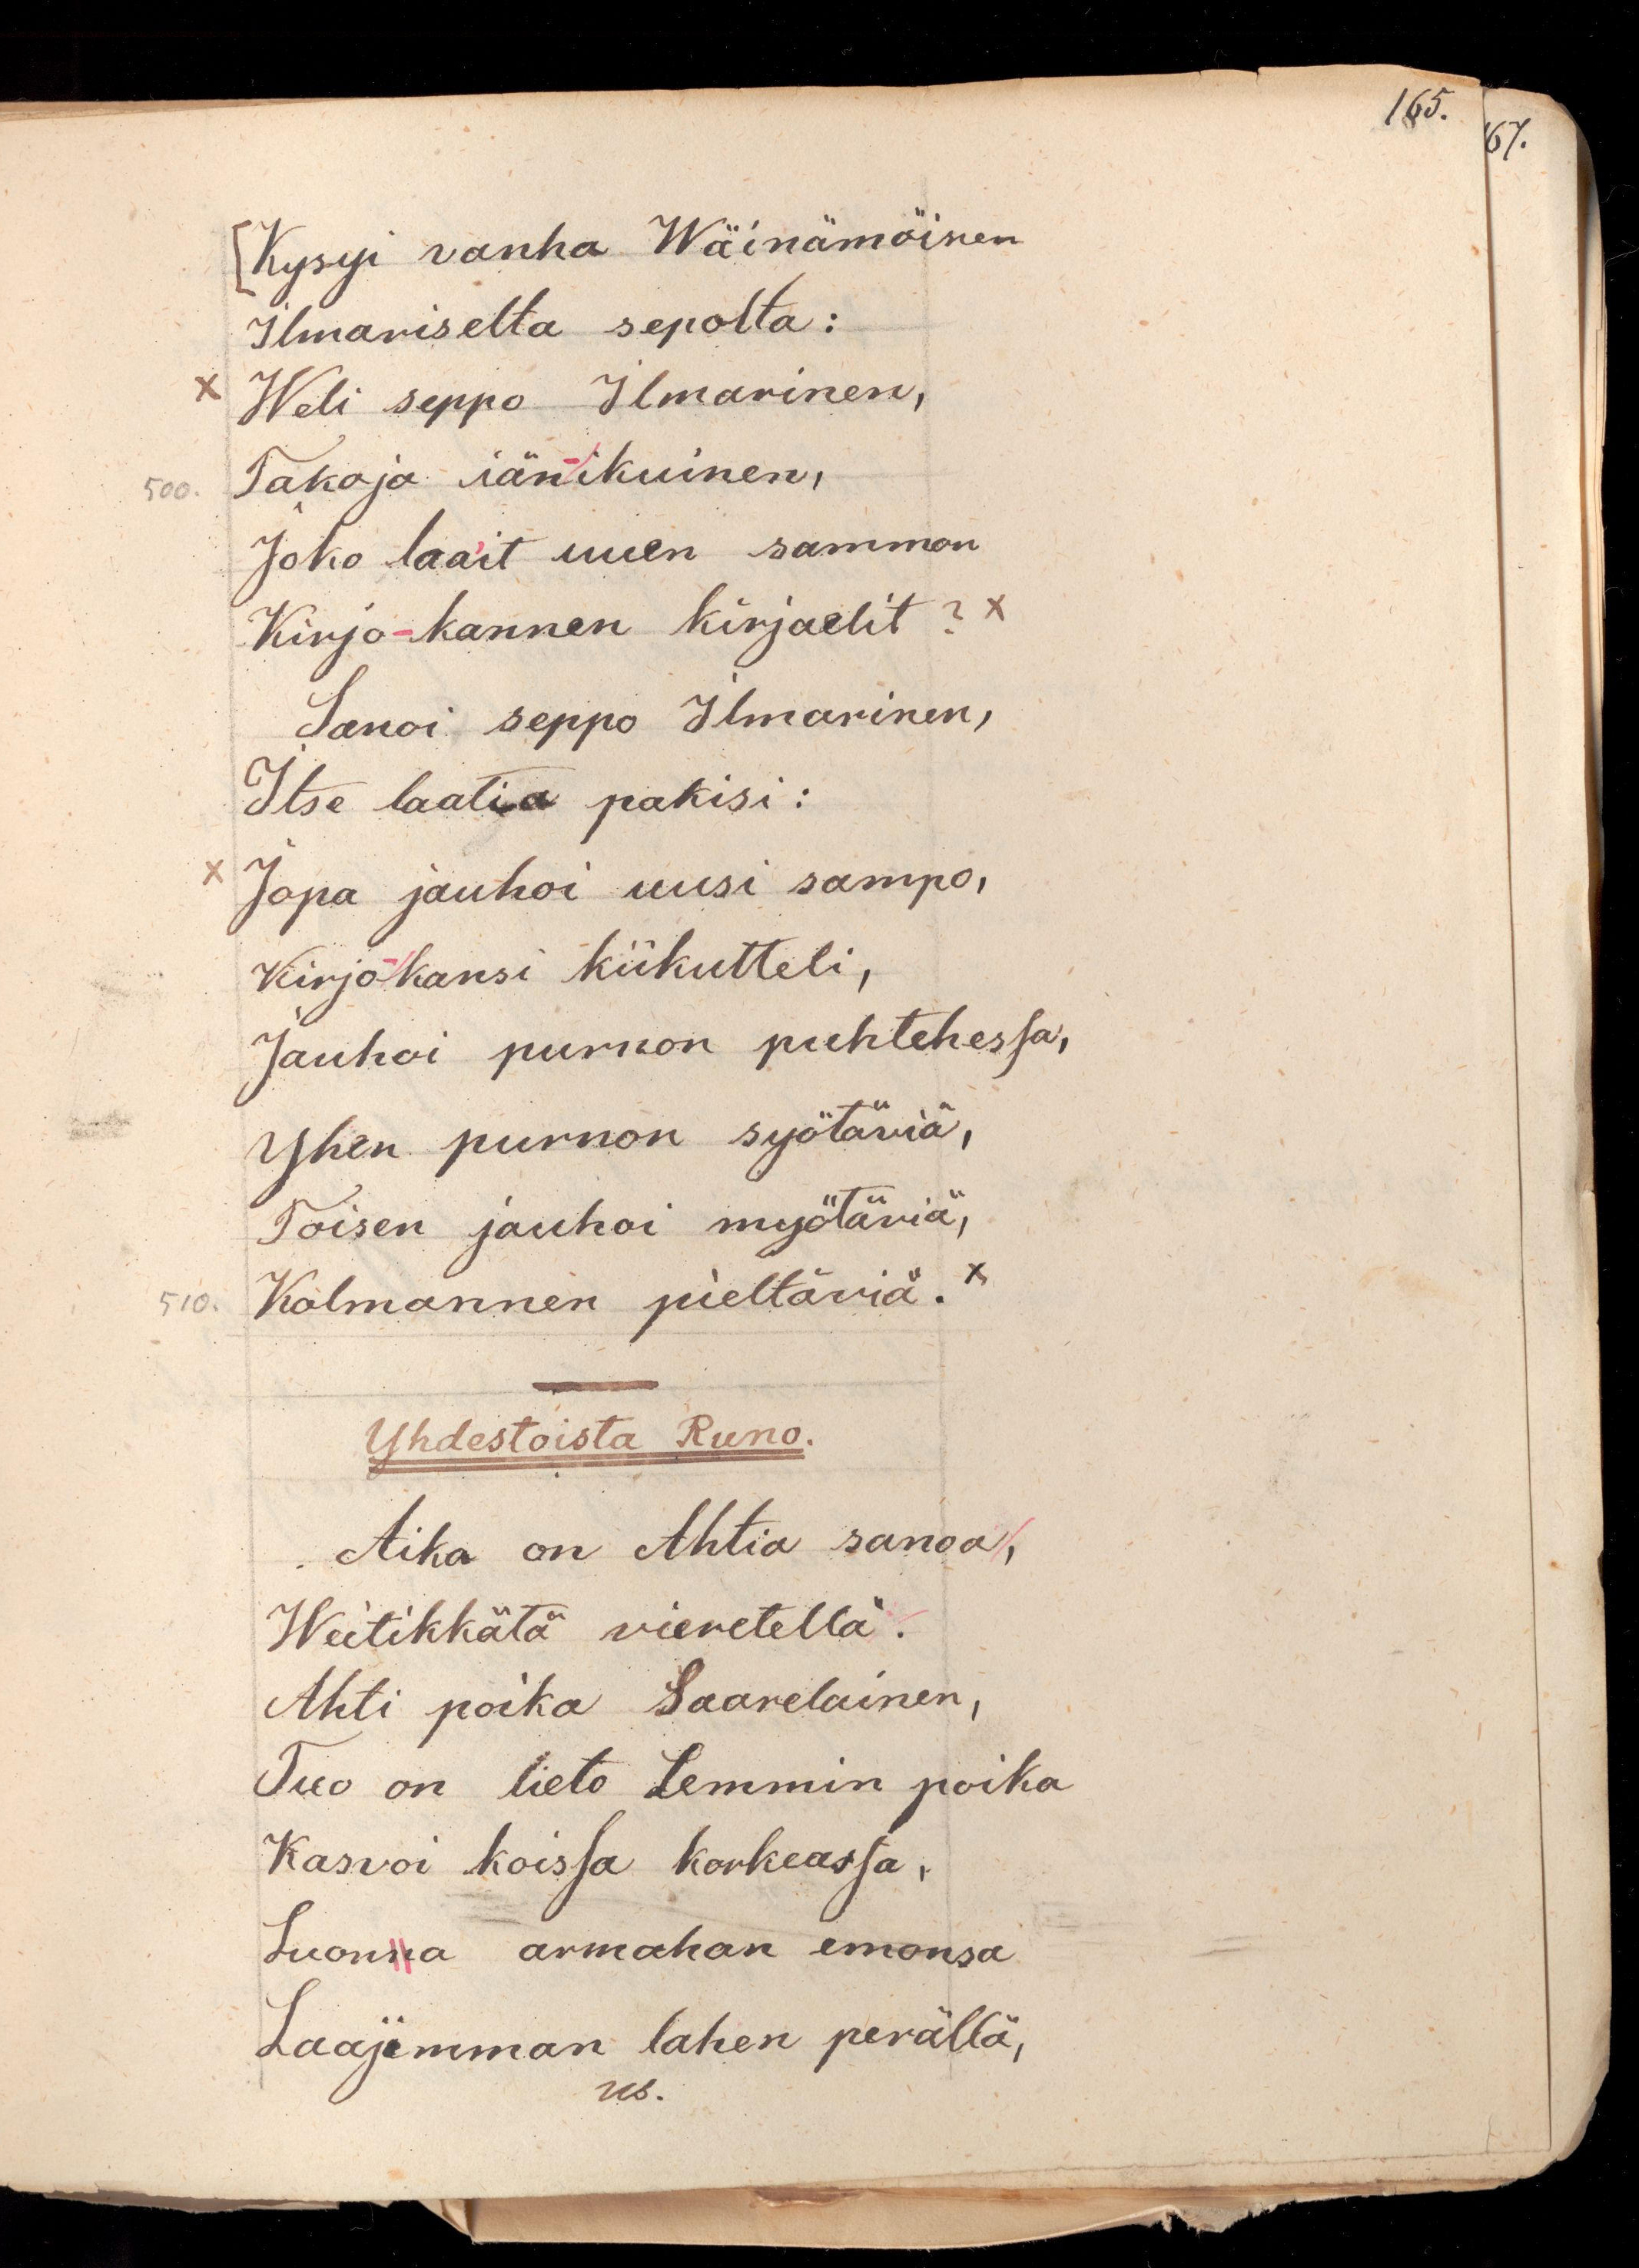 165.
67.
[Kysyi vanha Wäinämöinen
Ilmariselta sepolta:
x Weli seppo Ilmarinen,
500. Takoja iän-ikuinen,
Joko laa'it uuen sammon
Kirjo-kannen kirjaelit? x
Sanoi seppo Ilmarinen,
Itse laatia pakisi:
x Jopa jauhoi uusi sampo,
Kirjo-kansi kiikutteli,
Jauhoi purnon puhtehessa,
Yhen purnon syötäviä,
Toisen jauhoi myötäviä,
510. Kolmannen pieltäviä. x
Yhdestoista Runo.
Aika on Ahtia sanoa,
Weitikkätä vieretellä.
Ahti poika Saarelainen,
Tuo on lieto Lemmin poika
Kasvoi koissa korkeassa,
Luonna armahan emonsa
Laajemman lahen perällä,